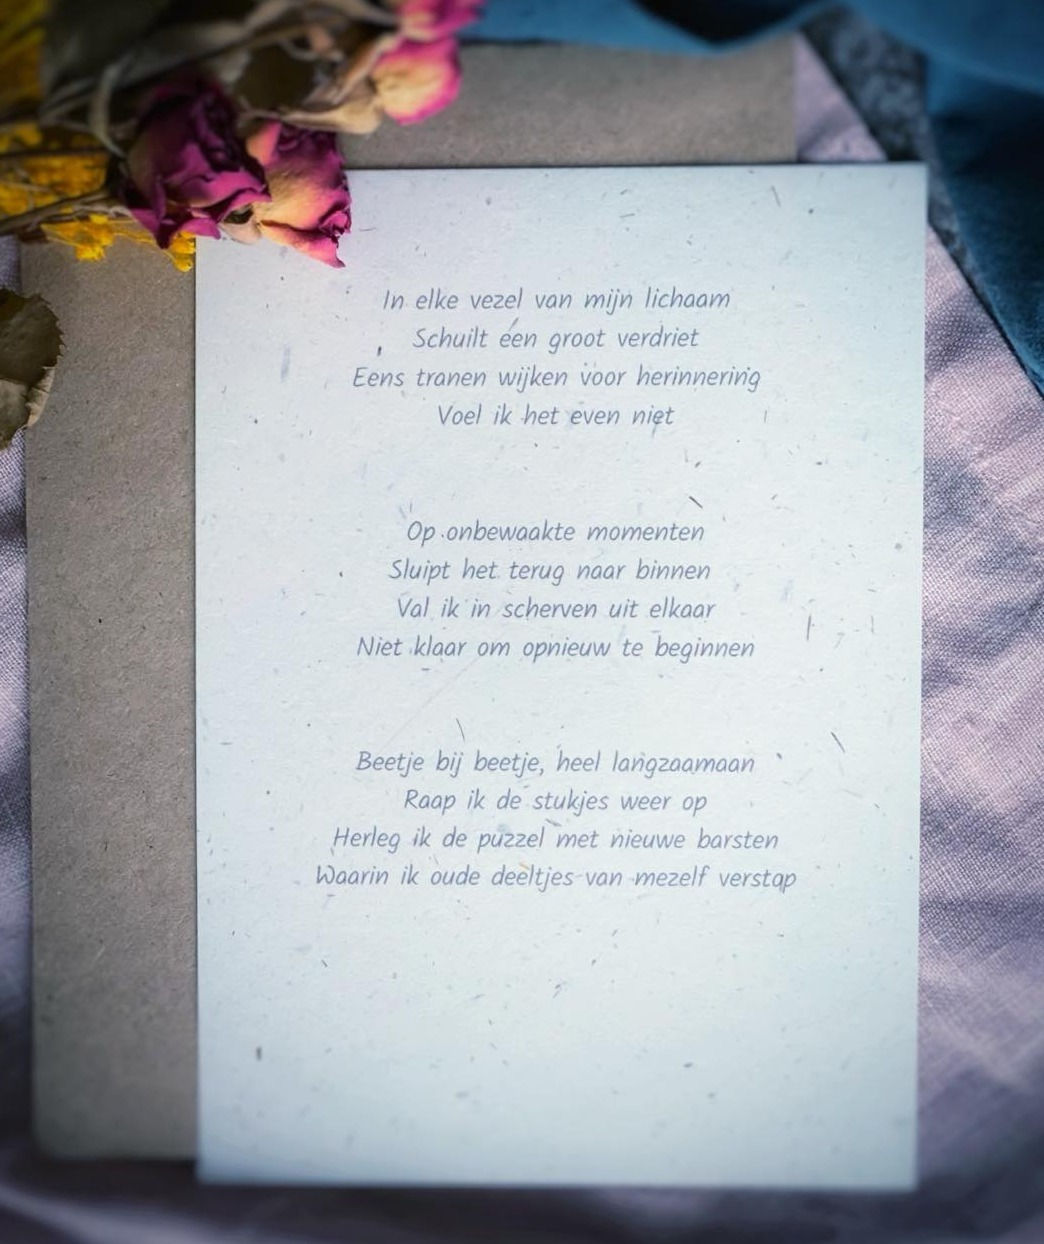 In elke vezel van mijn lichaam
Schuilt een groot verdriet
Eens tranen wijken voor herinnering
Voel ik het even niet
Op onbewaakte momenten
Sluipt het terug naar binnen
Val ik in scherven uit elkaar
Niet klaar om opnieuw te beginnen
Beetje bij beetje, heel langzaamaan
Raap ik de stukjes weer op
Herleg ik de puzzel met nieuwe barsten
Waarin ik oude deeltjes van mezelf verstop